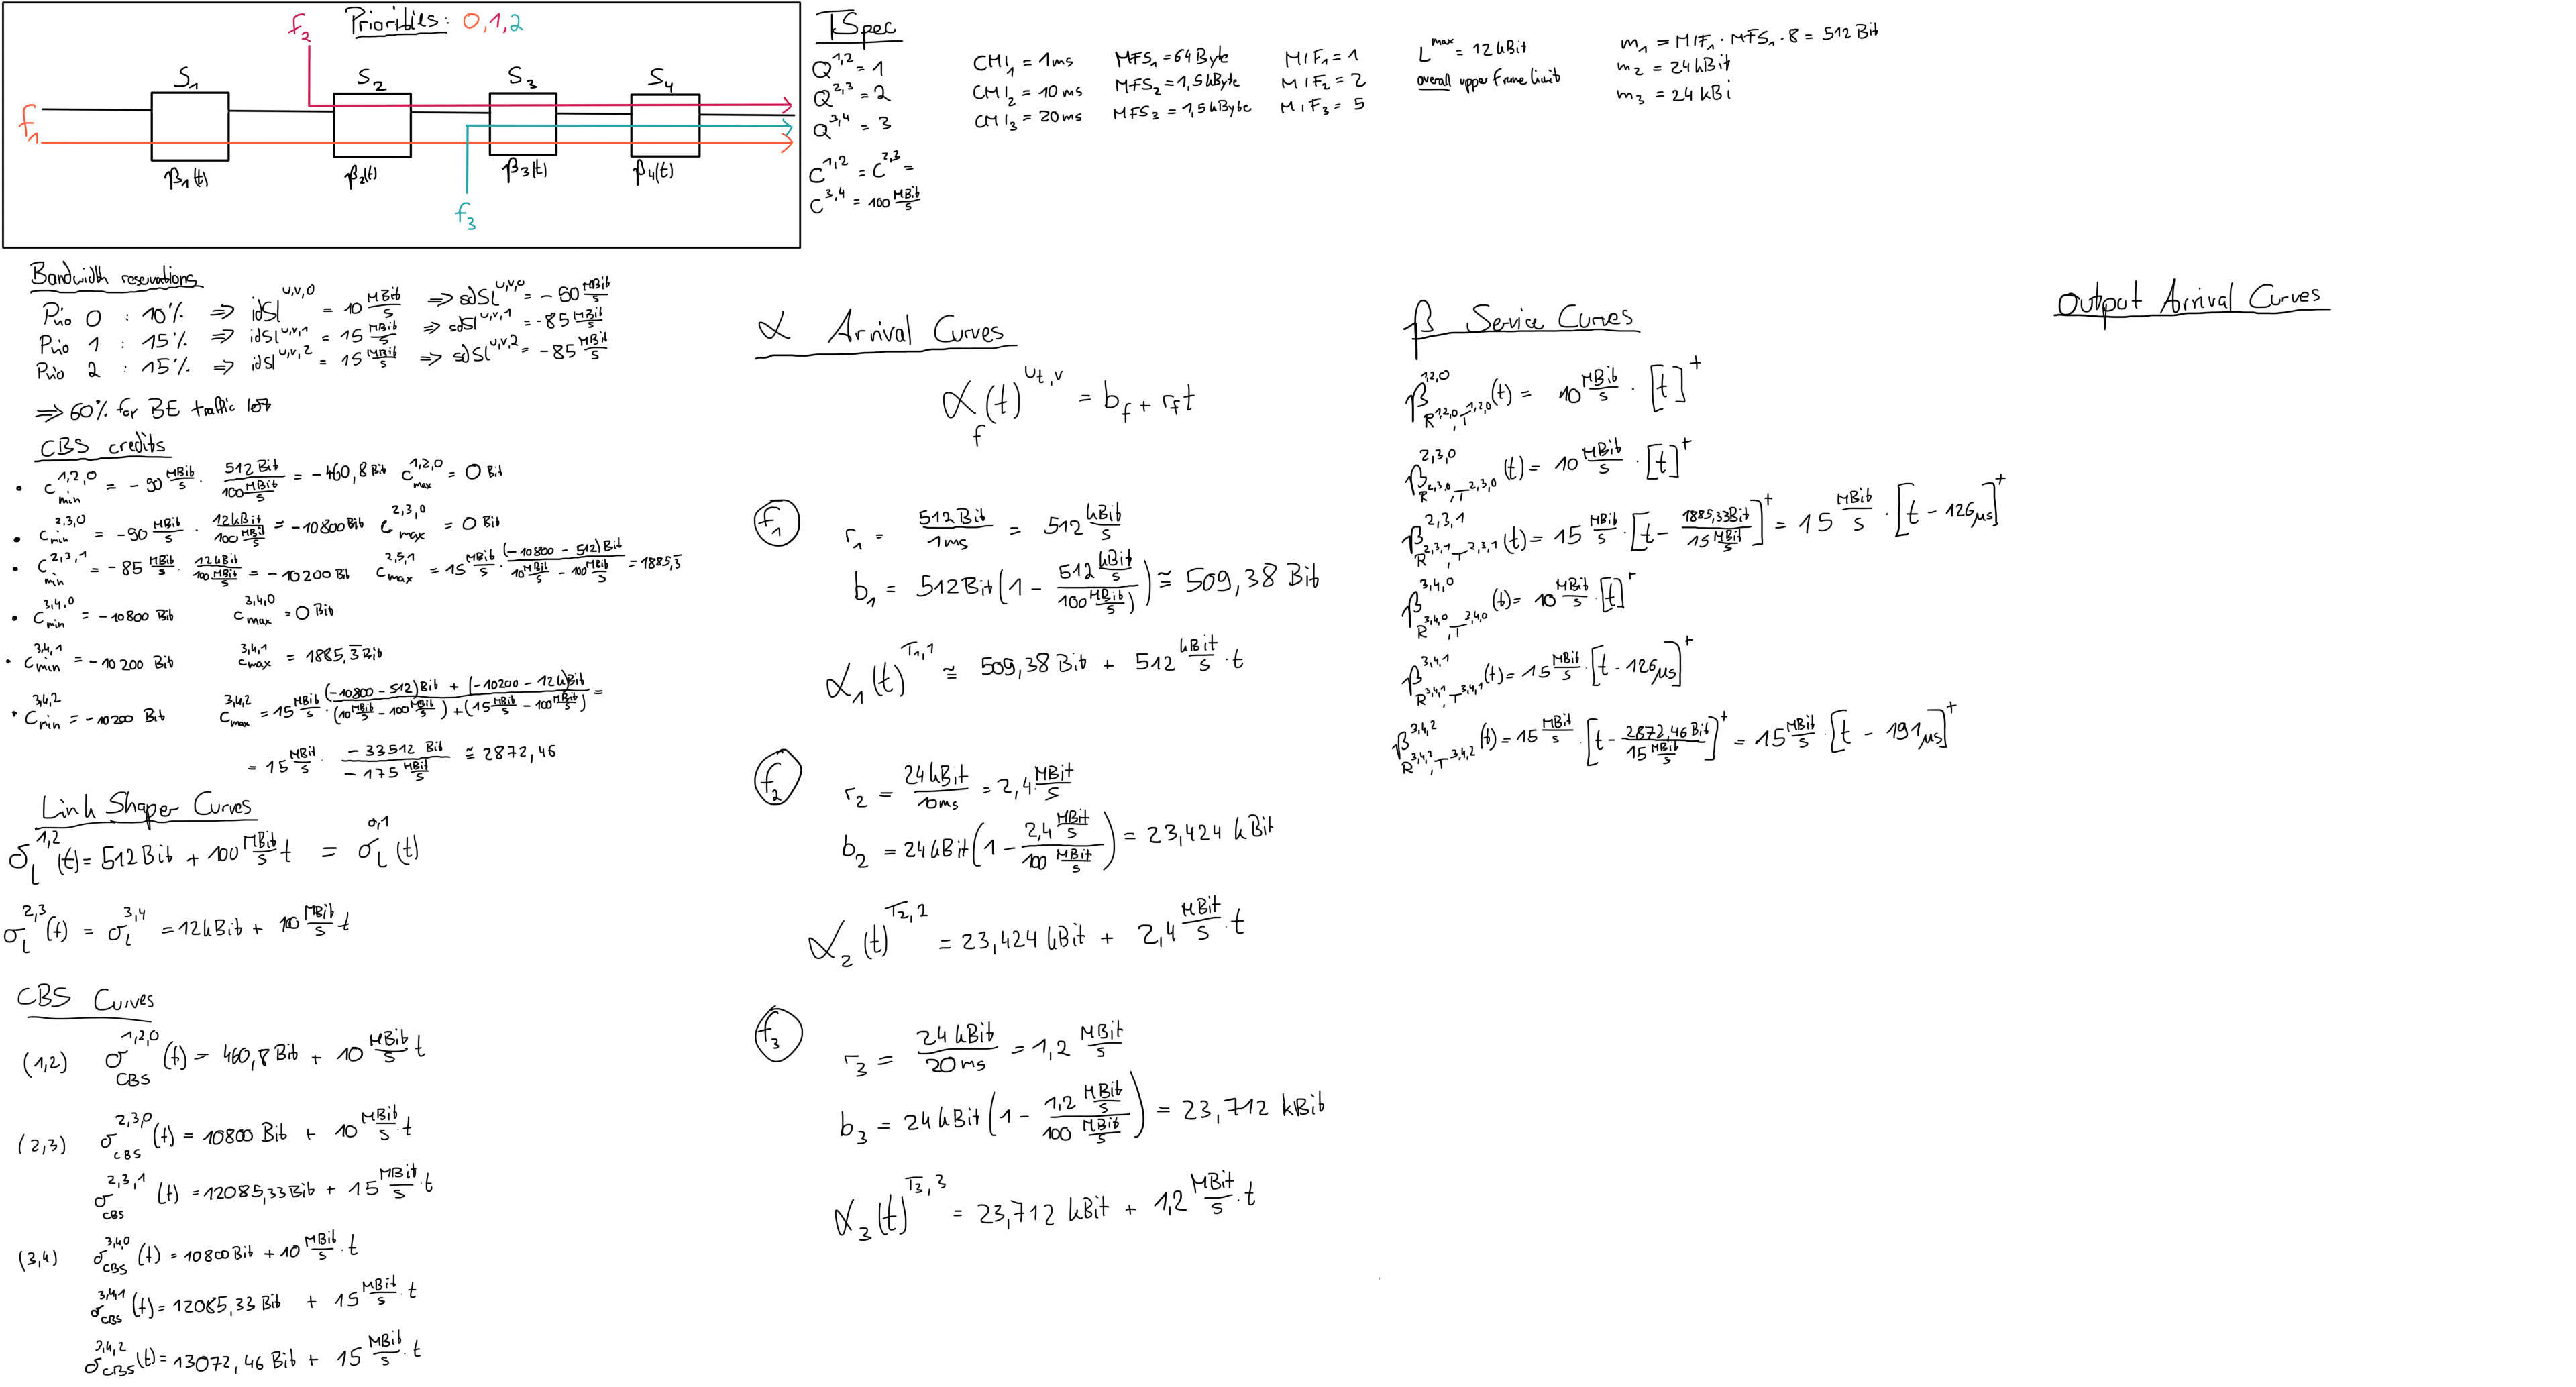 Priorities: 0,1,2
f₂
S₁ S₂ S₃ S₄
f₁
β₁(t) β₂(t) β₃(t) β₄(t)
f₃
TSpec
Q^{1,2} = 1
Q^{2,3} = 2
Q^{3,4} = 3
C^{1,2} = C^{2,3} =
C^{3,4} = 100 MBit/s
CMI₁ = 1ms MFS₁ = 64 Byte MIF₁ = 1
CMI₂ = 10 ms MFS₂ = 1,5 kByte MIF₂ = 2
CMI₃ = 20ms MFS₃ = 1,5 kByte MIF₃ = 5
L^{max} = 12 kBit
overall upper frame limit
m₁ = MIF₁ · MFS₁ · 8 = 512 Bit
m₂ = 24 kBit
m₃ = 24 kBi
Bandwidth reservations
Prio 0 : 10% ⇒ idSl^{u,v,0} = 10 MBit/s ⇒ sdSl^{u,v,0} = - 90 MBit/s
Prio 1 : 15% ⇒ idSl^{u,v,1} = 15 MBit/s ⇒ sdSl^{u,v,1} = -85 MBit/s
Prio 2 : 15% ⇒ idSl^{u,v,2} = 15 MBit/s ⇒ sdSl^{u,v,2} = -85 MBit/s
⇒ 60% for BE traffic left
CBS credits
• c_{min}^{1,2,0} = - 90 MBit/s · 512 Bit / 100 MBit/s = -460,8 Bit c_{max}^{1,2,0} = 0 Bit
• c_{min}^{2,3,0} = -90 MBit/s · 12 kBit / 100 MBit/s = -10800 Bit c_{max}^{2,3,0} = 0 Bit
• c_{min}^{2,3,1} = -85 MBit/s · 12 kBit / 100 MBit/s = -10 200 Bit c_{max}^{2,3,1} = 15 MBit/s · (-10800 - 512) Bit / (10 MBit/s - 100 MBit/s) = 1885,3̅
• c_{min}^{3,4,0} = -10800 Bit c_{max}^{3,4,0} = 0 Bit
• c_{min}^{3,4,1} = -10 200 Bit c_{max}^{3,4,1} = 1885,3̅ Bit
• c_{min}^{3,4,2} = -10200 Bit c_{max}^{3,4,2} = 15 MBit/s · ((-10800 - 512) Bit + (-10200 - 12 k)Bit) / ((10 MBit/s - 100 MBit/s) + (15 MBit/s - 100 MBit/s)) =
= 15 MBit/s · -33512 Bit / -175 MBit/s ≅ 2872,46
Link Shaper Curves
σ_L^{1,2}(t) = 512 Bit + 100 MBit/s t = σ_L^{0,1}(t)
σ_L^{2,3}(t) = σ_L^{3,4} = 12 kBit + 100 MBit/s t
CBS Curves
(1,2) σ_{CBS}^{1,2,0}(t) = 460,8 Bit + 10 MBit/s t
(2,3) σ_{CBS}^{2,3,0}(t) = 10800 Bit + 10 MBit/s · t
σ_{CBS}^{2,3,1}(t) = 12085,33 Bit + 15 MBit/s · t
(3,4) σ_{CBS}^{3,4,0}(t) = 10800 Bit + 10 MBit/s · t
σ_{CBS}^{3,4,1}(t) = 12085,33 Bit + 15 MBit/s · t
σ_{CBS}^{3,4,2}(t) = 13072,46 Bit + 15 MBit/s · t
α Arrival Curves
α_f(t)^{U_t,v} = b_f + r_f t
f₁
r₁ = 512 Bit / 1 ms = 512 kBit/s
b₁ = 512 Bit (1 - 512 kBit/s / 100 MBit/s) ≅ 509,38 Bit
α₁(t)^{T₁,1} ≅ 509,38 Bit + 512 kBit/s · t
f₂
r₂ = 24 kBit / 10ms = 2,4 MBit/s
b₂ = 24 kBit (1 - 2,4 MBit/s / 100 MBit/s) = 23,424 kBit
α₂(t)^{T₂,2} = 23,424 kBit + 2,4 MBit/s · t
f₃
r₃ = 24 kBit / 20 ms = 1,2 MBit/s
b₃ = 24 kBit (1 - 1,2 MBit/s / 100 MBit/s) = 23,712 kBit
α₃(t)^{T₃,3} = 23,712 kBit + 1,2 MBit/s · t
β Service Curves
β^{1,2,0}_{R^{1,2,0},T^{1,2,0}}(t) = 10 MBit/s · [t]⁺
β^{2,3,0}_{R^{2,3,0},T^{2,3,0}}(t) = 10 MBit/s · [t]⁺
β^{2,3,1}_{R^{2,3,1},T^{2,3,1}}(t) = 15 MBit/s · [t - 1885,33 Bit / 15 MBit/s]⁺ = 15 MBit/s · [t - 126 μs]⁺
β^{3,4,0}_{R^{3,4,0},T^{3,4,0}}(t) = 10 MBit/s · [t]⁺
β^{3,4,1}_{R^{3,4,1},T^{3,4,1}}(t) = 15 MBit/s · [t - 126 μs]⁺
β^{3,4,2}_{R^{3,4,2},T^{3,4,2}}(t) = 15 MBit/s · [t - 2872,46 Bit / 15 MBit/s]⁺ = 15 MBit/s · [t - 191 μs]⁺
Output Arrival Curves